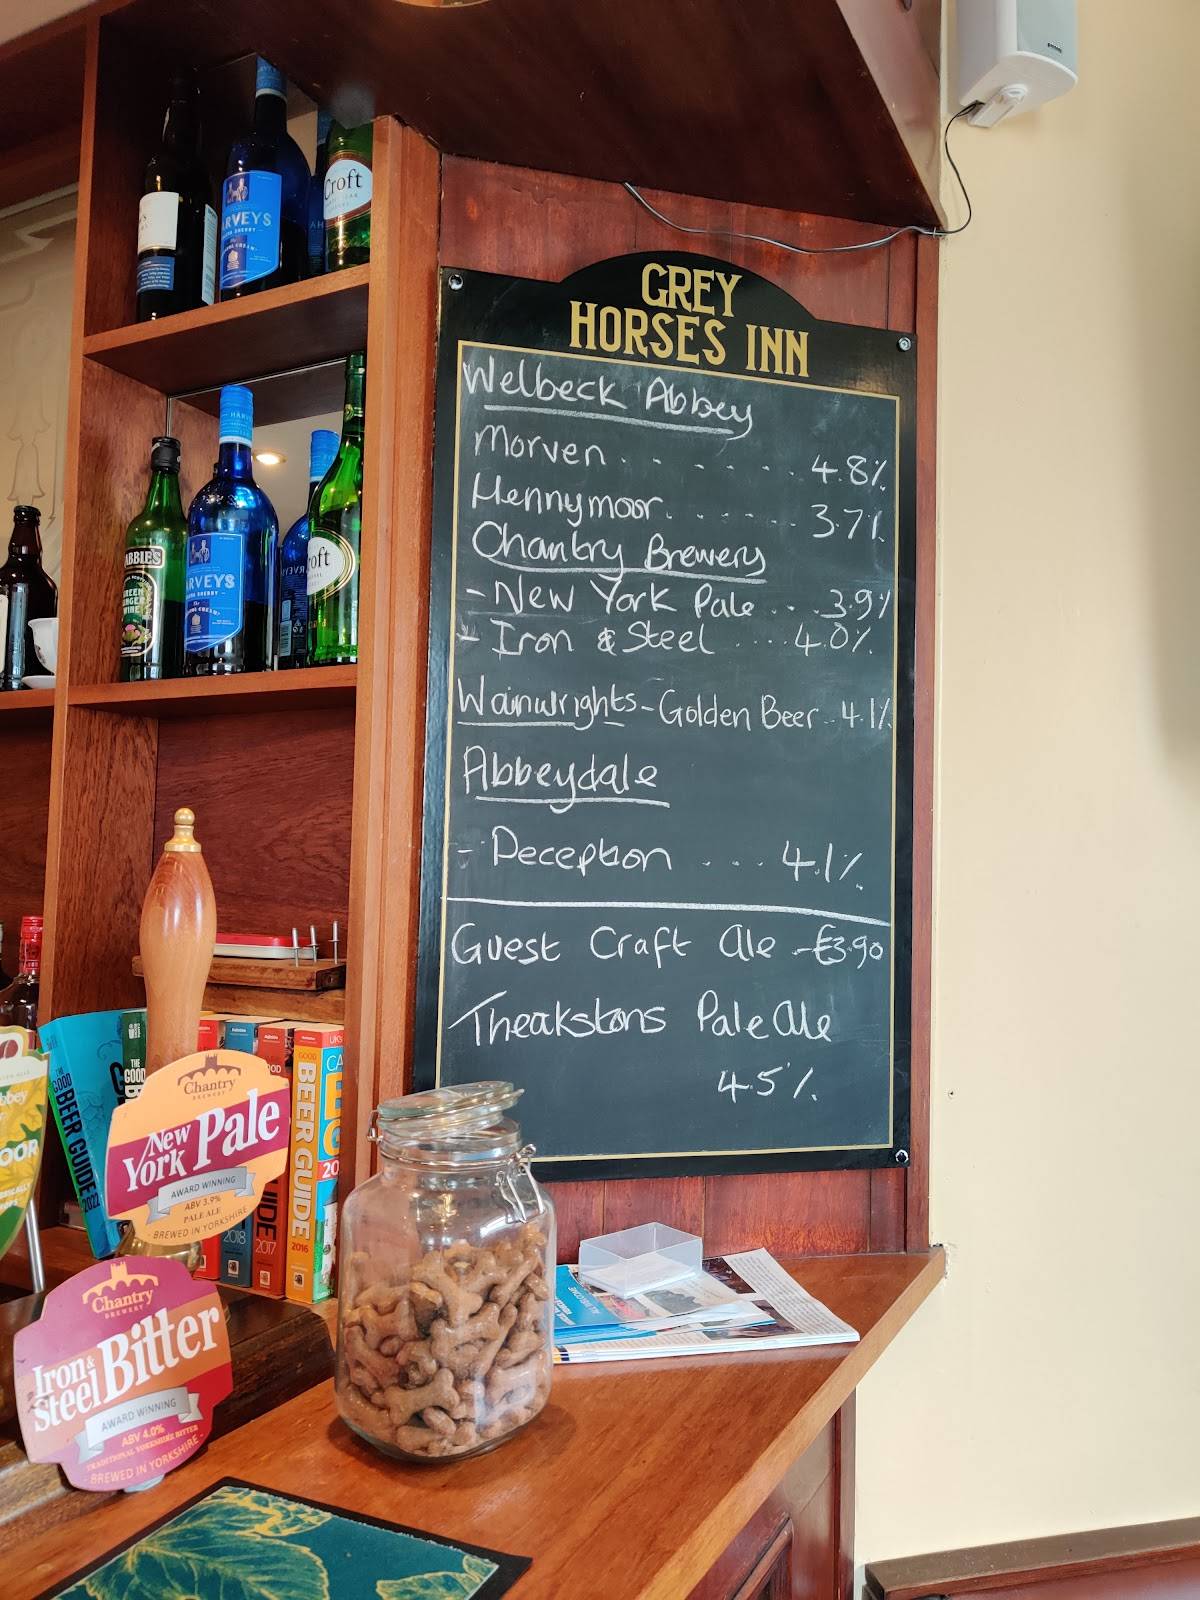 GREY
HORSES INN
Welbeck Abbey
Morven . . . . . . . 4.8%
Hennymoor . . . . . . 3.7%
Chantry Brewery
- New York Pale . . . 3.9%
- Iron & Steel . . . 4.0%
Wainwrights - Golden Beer .. 4.1%
Abbeydale
- Deception . . . 4.1%
Guest Craft Ale - £3.90
Theakstons Pale Ale
4.5%
HARVEYS
Croft
ABBIES
GREEN
GINGER
WINE
HARVEYS
Croft
THE
GOOD
BEER GUIDE
2022
THE
GOOD
2018
GUIDE
2017
GOOD
BEER GUIDE
2016
Chantry
BREWERY
New
York Pale
AWARD WINNING
ABV 3.9%
PALE ALE
- BREWED IN YORKSHIRE -
Chantry
BREWERY
Iron &
Steel Bitter
AWARD WINNING
ABV 4.0%
TRADITIONAL YORKSHIRE BITTER
- BREWED IN YORKSHIRE -